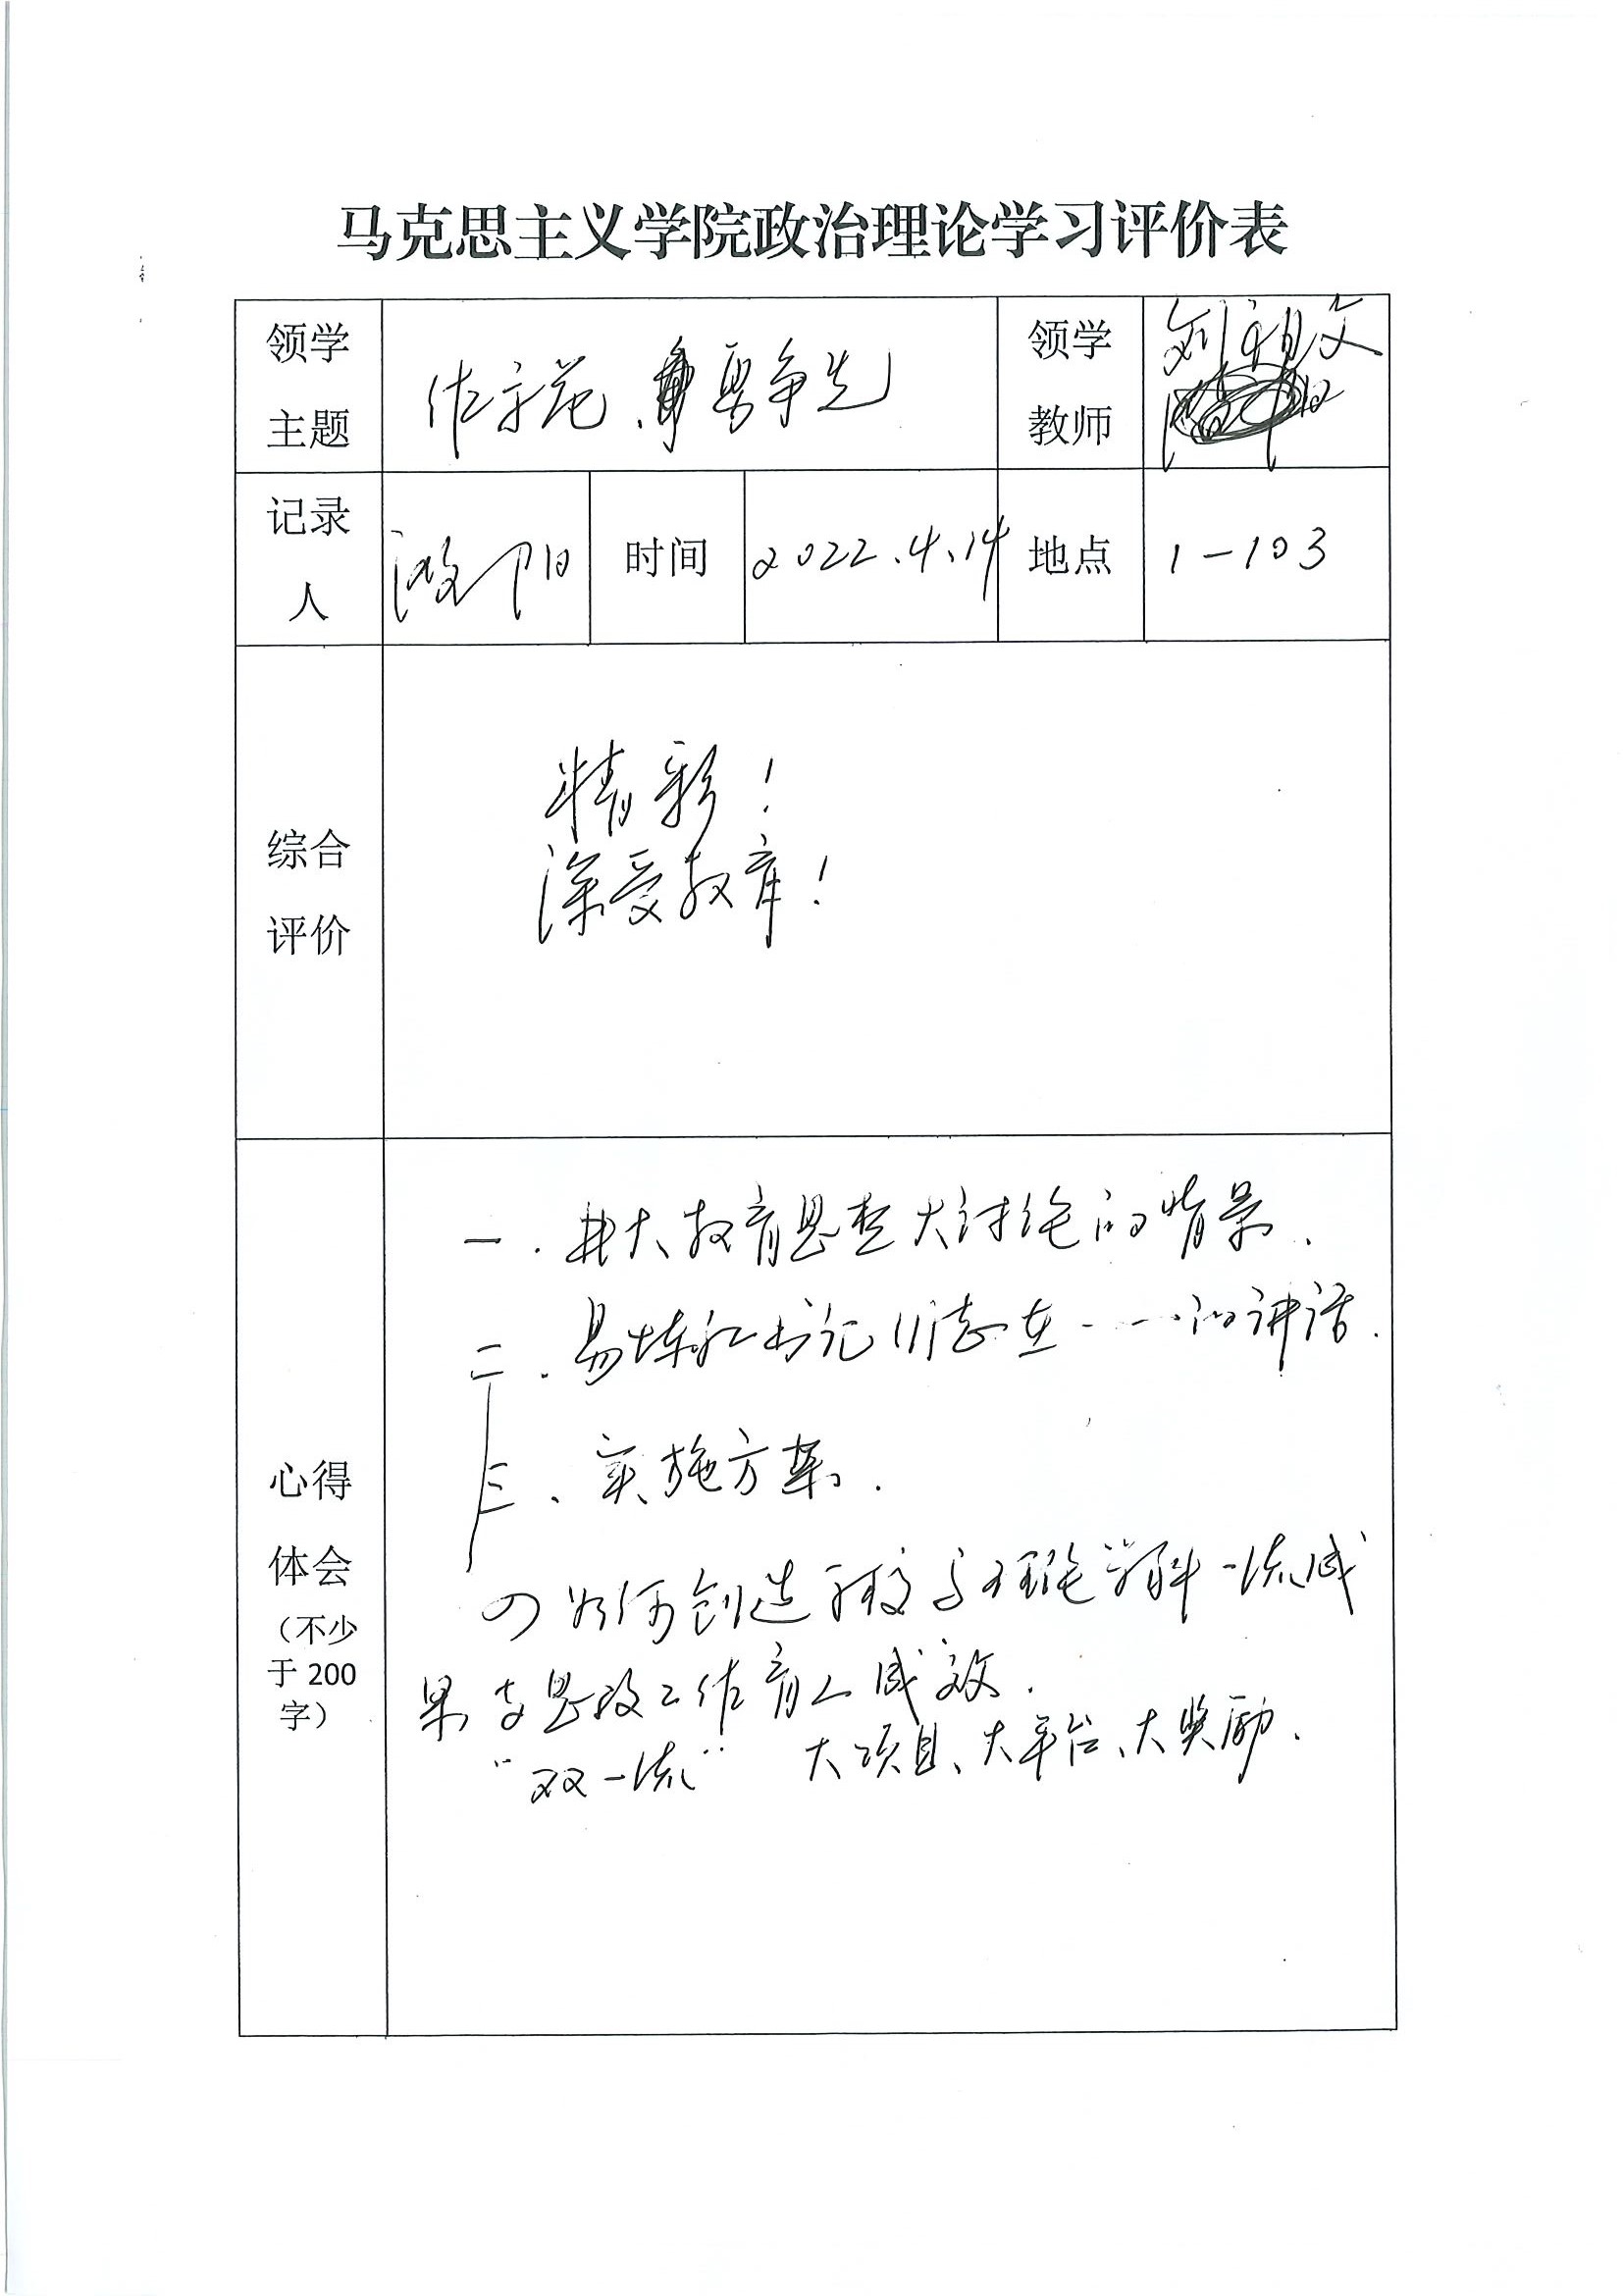 马克思主义学院政治理论学习评价表
领学主题 作示范、勇争先 领学教师 刘
记录人 阳 时间 2022.4.14 地点 1-103
综合评价
精彩!
深受教育!
心得体会(不少于200字)
一. 大教育思想大讨论的背景.
二. 易炼红书记 在 的讲话.
三、实施方案.
如何创造 马理论学科一流成
果与思政工作育人成效.
"双一流" 大项目、大平台、大奖励.